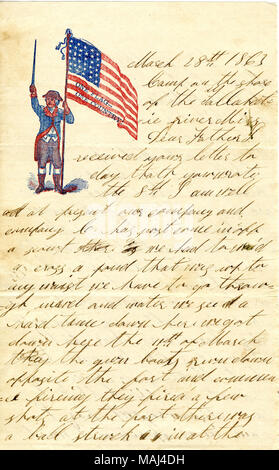 March 28th 1863
Camp on the shore
of the tallahatch
ie river Miss
Dear Father I
received your letter to
day that you wrote
the 8th I am well
at present our company and
company C has just come in off
a scout we had to
cross a pond that was up to
my waist we have to go throu
gh mud and water we see a
hard time down here we got
down here the of March
the gun boats down
opposite the port and commen
ce firing they fired a few
shots at the port there was
a ball struck in at the
alamy
Image ID: MAJ4DH
www.alamy.com